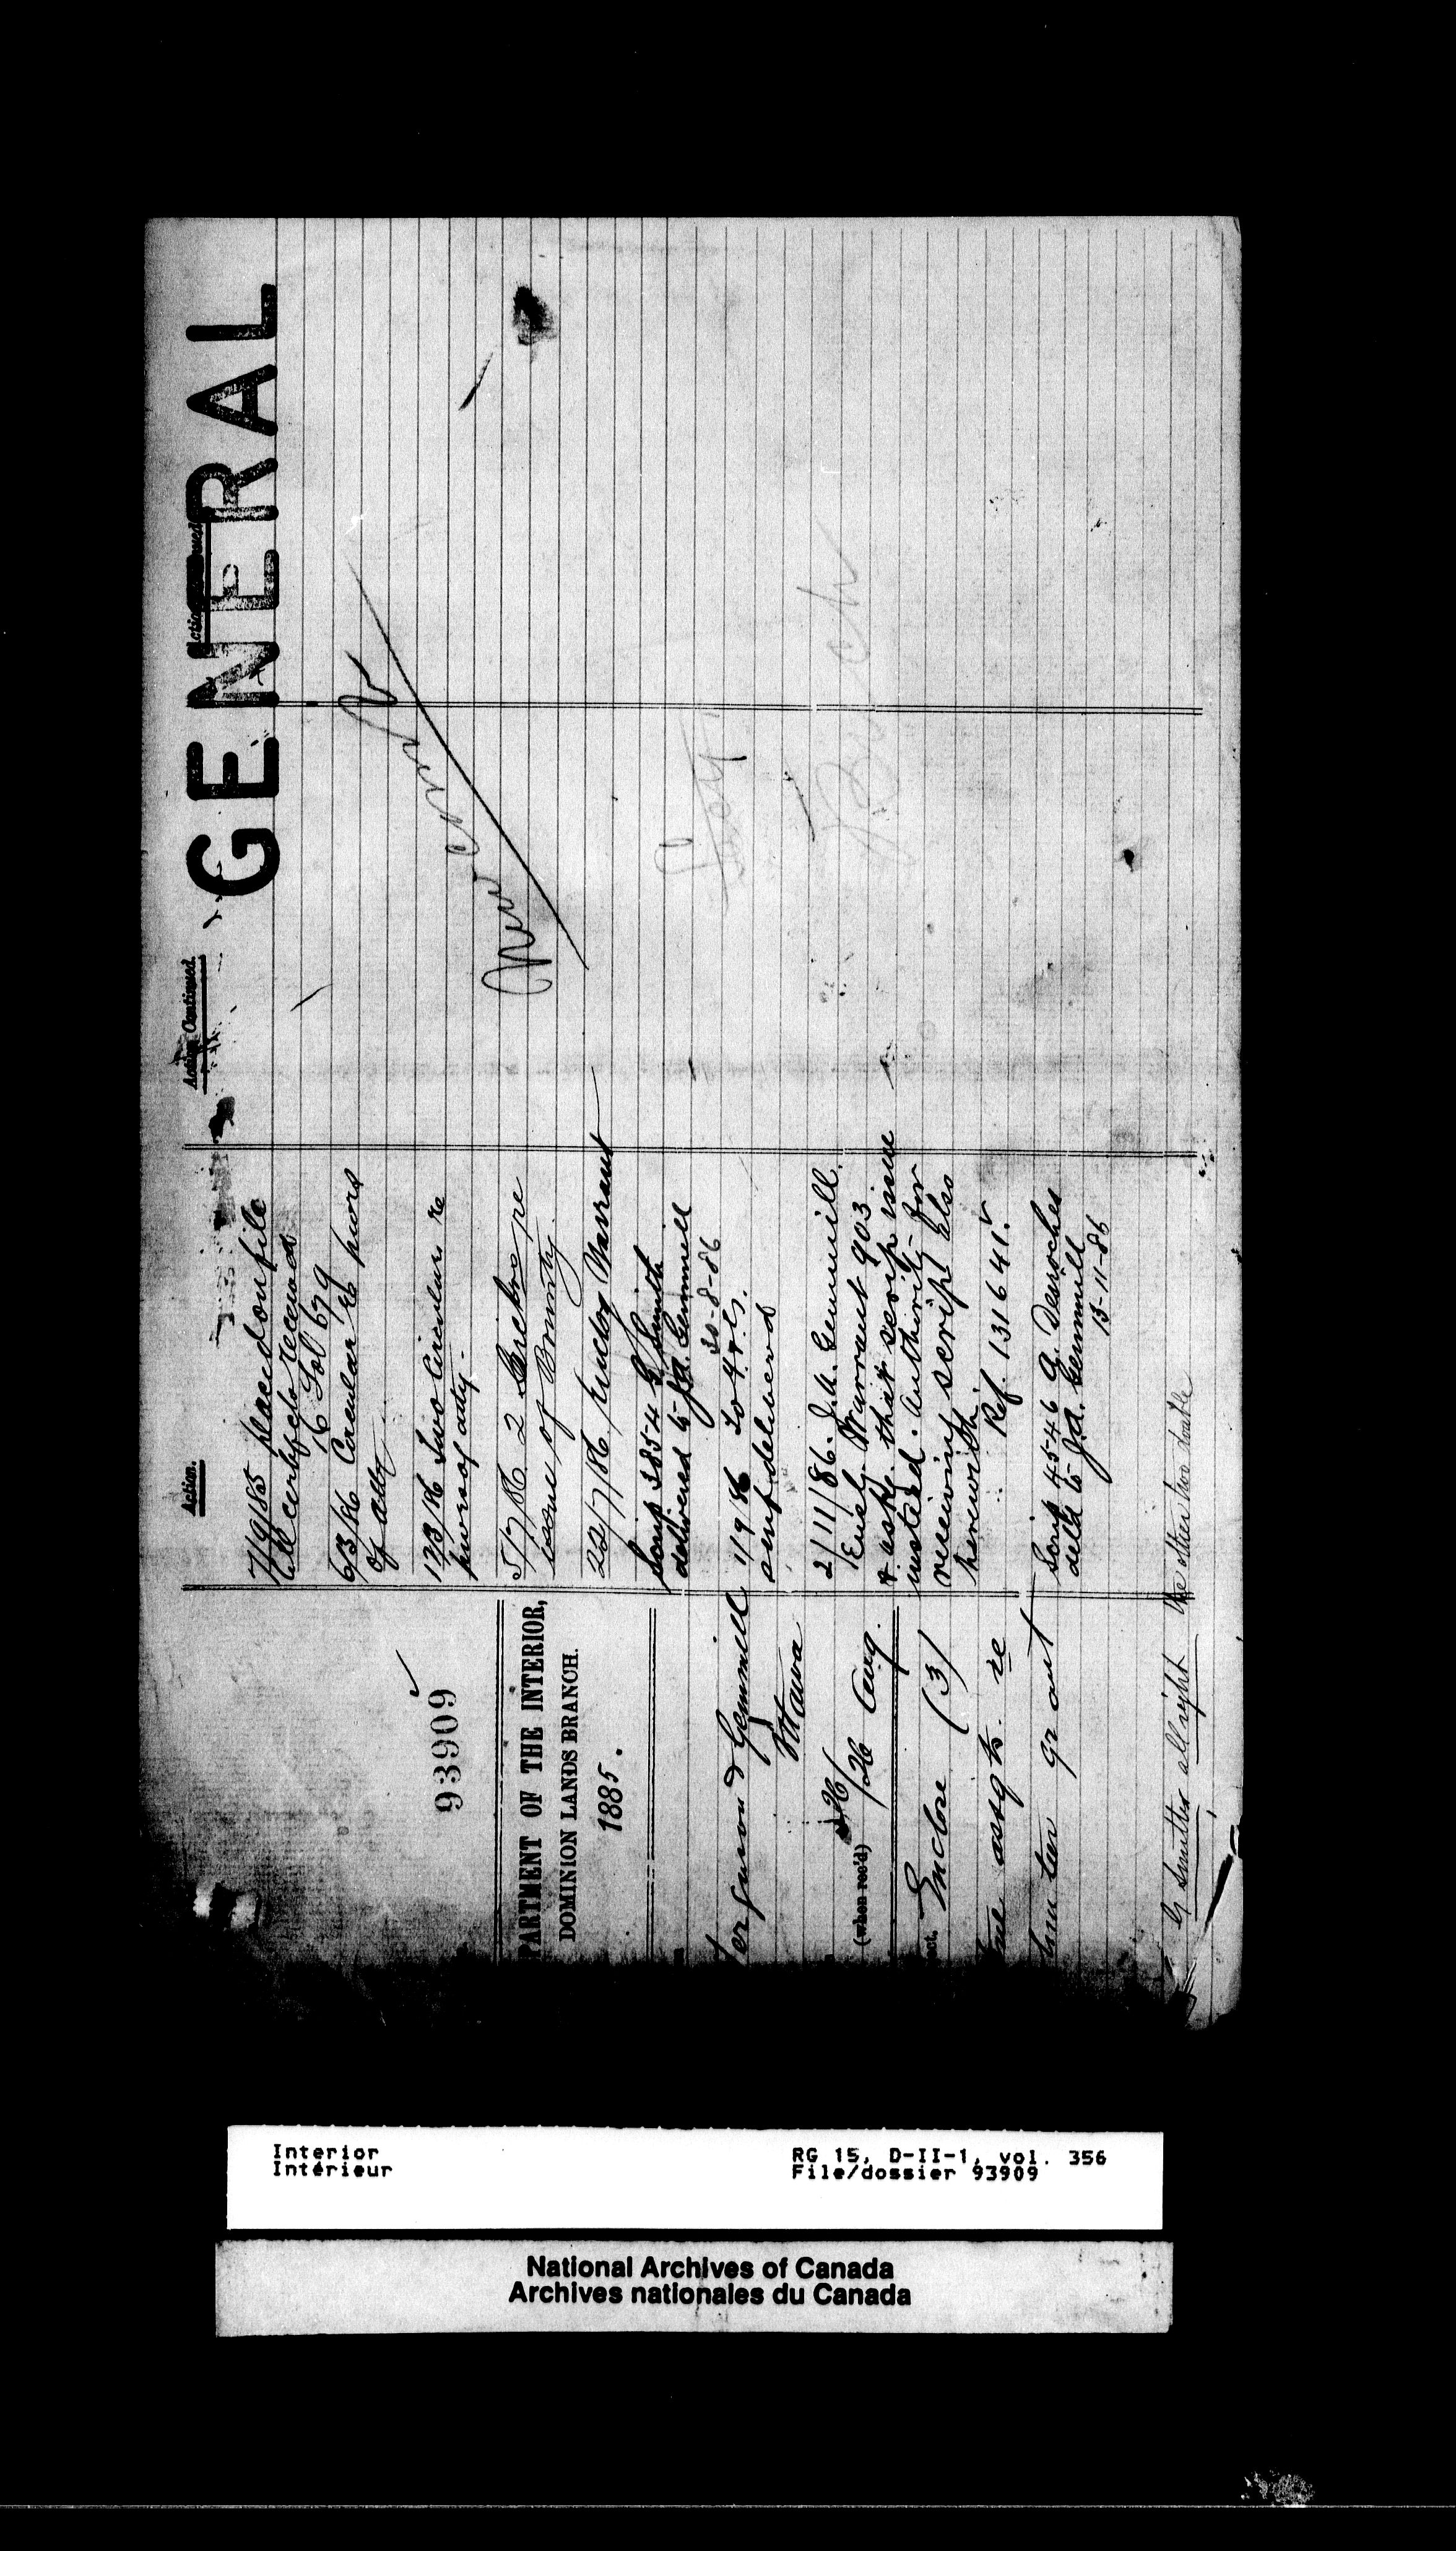 GENERAL
93909
DEPARTMENT OF THE INTERIOR,
DOMINION LANDS BRANCH.
1885.
Ferguson & Gemmill
Ottawa
26/26 Aug.
(when rec'd)
Enclose (3)
assgts. re
grant
G Smith all right the other two
Action.
7/9/85 placed on file
till certifcts received
16 Fol 679
6/3/86 Circular re pwrs
of atty
12/3/86 Two Circulars re
pwrs of atty-
5/7/86 2 re
issue of Bounty.
22/7/86 Warrant
Scrip 3854 G Smith
delivered to J.A. Gemmill
30-8-86
1/9/86 To F & G.
scrip delivered
2/11/86. J.A. Gemmill.
Encl. Warrant 903
& asks that scrip issue
instead. Authority for
receiving scrip also
herewith.
Ref. 131641.
Scrip 4546 A. Desroches
deld to J.A. Gemmill
13-11-86
Action Continued.
Action Continued.
Interior
Intérieur
RG 15, D-II-1, vol. 356
File/dossier 93909
National Archives of Canada
Archives nationales du Canada